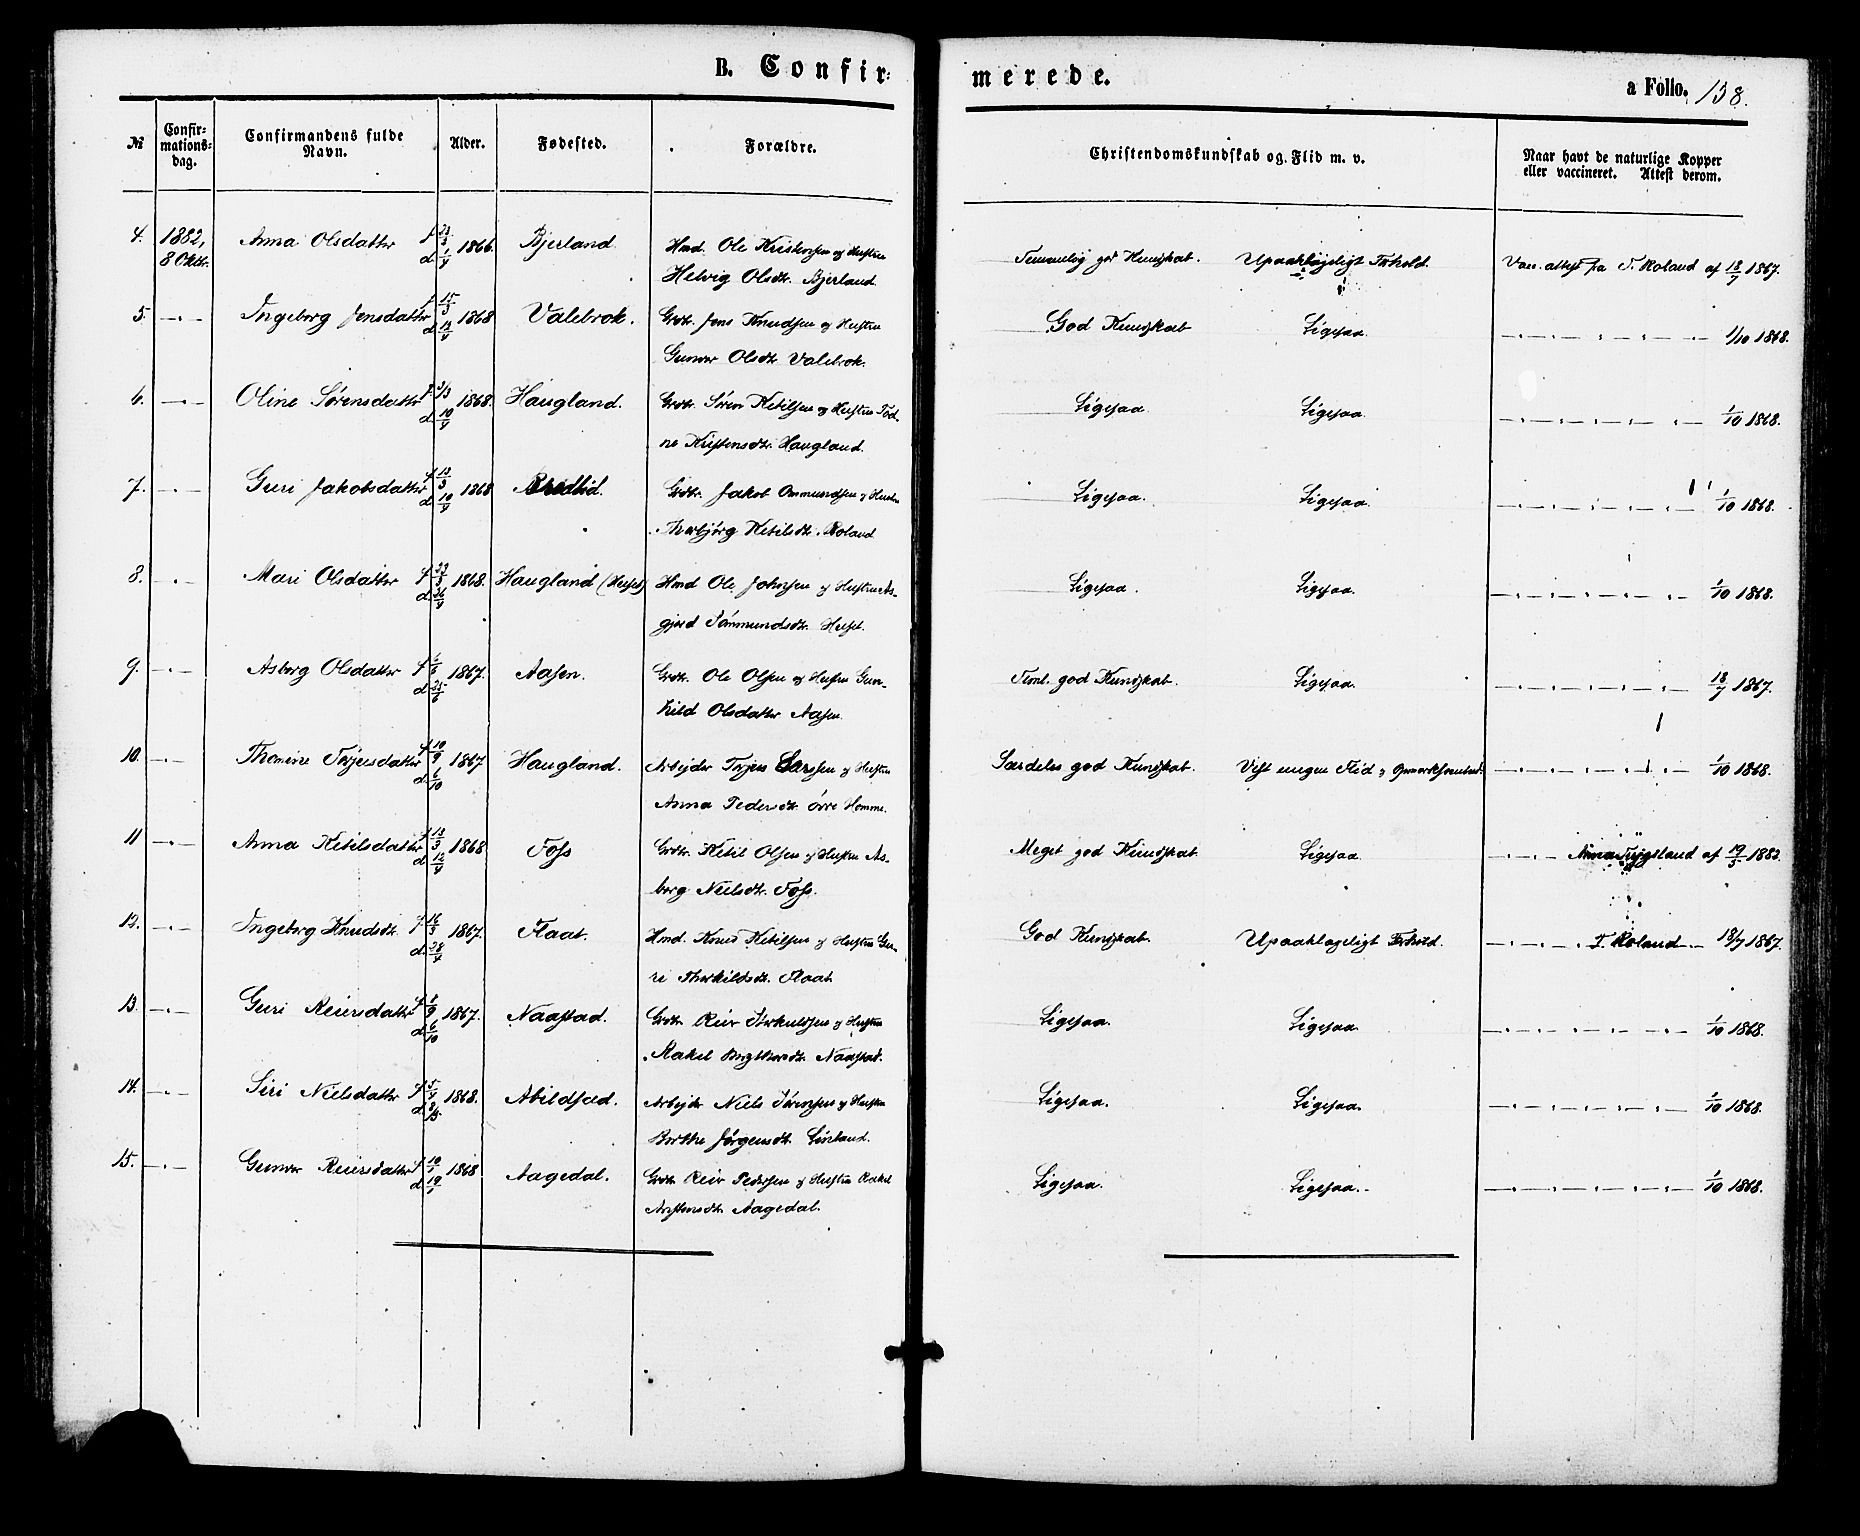 B. Confir-
merede.
a Folio. 138.
№
Confir-
mations-
dag.
Confirmandens fulde
Navn.
Alder.
Fødested.
Forældre.
Christendomskundskab og Flid m. v.
Naar havt de naturlige Kopper
eller vaccineret. Attest derom.
4. 1882, Anna Olsdatter f 1866. Bjerland Hmd. Ole Kristensen og Hustru
8 Oktbr. d Helvig Olsdt. Bjerland
Temmelig god Kundskab. Upaaklageligt Forhold. Vac. attest fra T. Roland af 18/7 1867.
5. —"— Ingeborg Jensdatter f 15/3 1868 Valebrok. Grdbr. Jens Knudsen og Hustru
d 13/4 Gunvor Olsdt. Valebrok.
God Kundskab Ligesaa. —"—"—"— 1/10 1868.
6. —"— Oline Sørensdatter f 3/3 1868. Haugland. Grdbr. Søren Ketilsen og Hustru Tod-
d 10/4 ne Kristensdt. Haugland.
Ligesaa. Ligesaa. —"—"—"— 1/10 1868.
7. —"— Guri Jakobsdatter f 13/3 1868 Bredlid. Grdbr. Jakob Ommundsen og Hustru
d 10/4 Thorbjørg Ketilsdt. Roland
Ligesaa. Ligesaa. —"—"—"— 1/10 1868.
8. —"— Mari Olsdatter f 23/3 1868. Haugland (Heiset) Hmd Ole Johnsen og Hustru As-
d 26/4 gjerd Tommundsdt. Heiset.
Ligesaa. Ligesaa. —"—"—"— 1/10 1868.
9. —"— Asborg Olsdatter f 1867. Aasen. Grdbr. Ole Olsen og Hustru Gun-
d 25/6 hild Olsdatter Aasen.
Teml. god Kundskab. Ligesaa. —"—"—"— 18/7 1867.
10. —"— Thomine Terjesdatter f 10/9 1867 Haugland. Arbejder Terjes Larssen og Hustru
d 6/10 Anna Pedersdt. Øvre Homme.
Særdeles god Kundskab. Vist megen Flid og Opmærksomhed. —"—"—"— 1/10 1868.
11 —"— Anna Ketilsdatter f 13/3 1868 Foss Grdbr. Ketil Olsen og Hustru As-
d 12/4 borg Nielsdt. Foss.
Meget god Kundskab Ligesaa —"—"— Anna Tuggeland af 19/5 1882.
12. —"— Ingeborg Knudsdt. f 16/3 1867. Flaat. Hmd. Knud Ketilsen og Hustru Gu-
d 28/4 ri Thorkildsdt. Flaat
God Kundskab. Upaaklageligt Forhold. —"—"— T. Roland — 18/7 1867.
13. —"— Guri Reiersdatter f 1867. Naastad. Grdbr. Reier Torkildsen og Hustru
d 6/10 Rakel Bergthorsdt. Naastad.
Ligesaa. Ligesaa —"—"—"— 1/10 1868.
14. —"— Siri Nielsdatter f 5/4 1868. Abildstad. Arbejder Niels Sørensen og Hustru
d Berthe Jørgensdt. Linland.
Ligesaa. Ligesaa. —"—"—"— 1/10 1868.
15. —"— Gunvor Reiersdatter f 10/1 1868 Aagedal. Grdbr. Reier Pedersen og Hustru Rakel
d 19/1 Aristensdt. Aagedal.
Ligesaa. Ligesaa. —"—"—"— 1/10 1868.